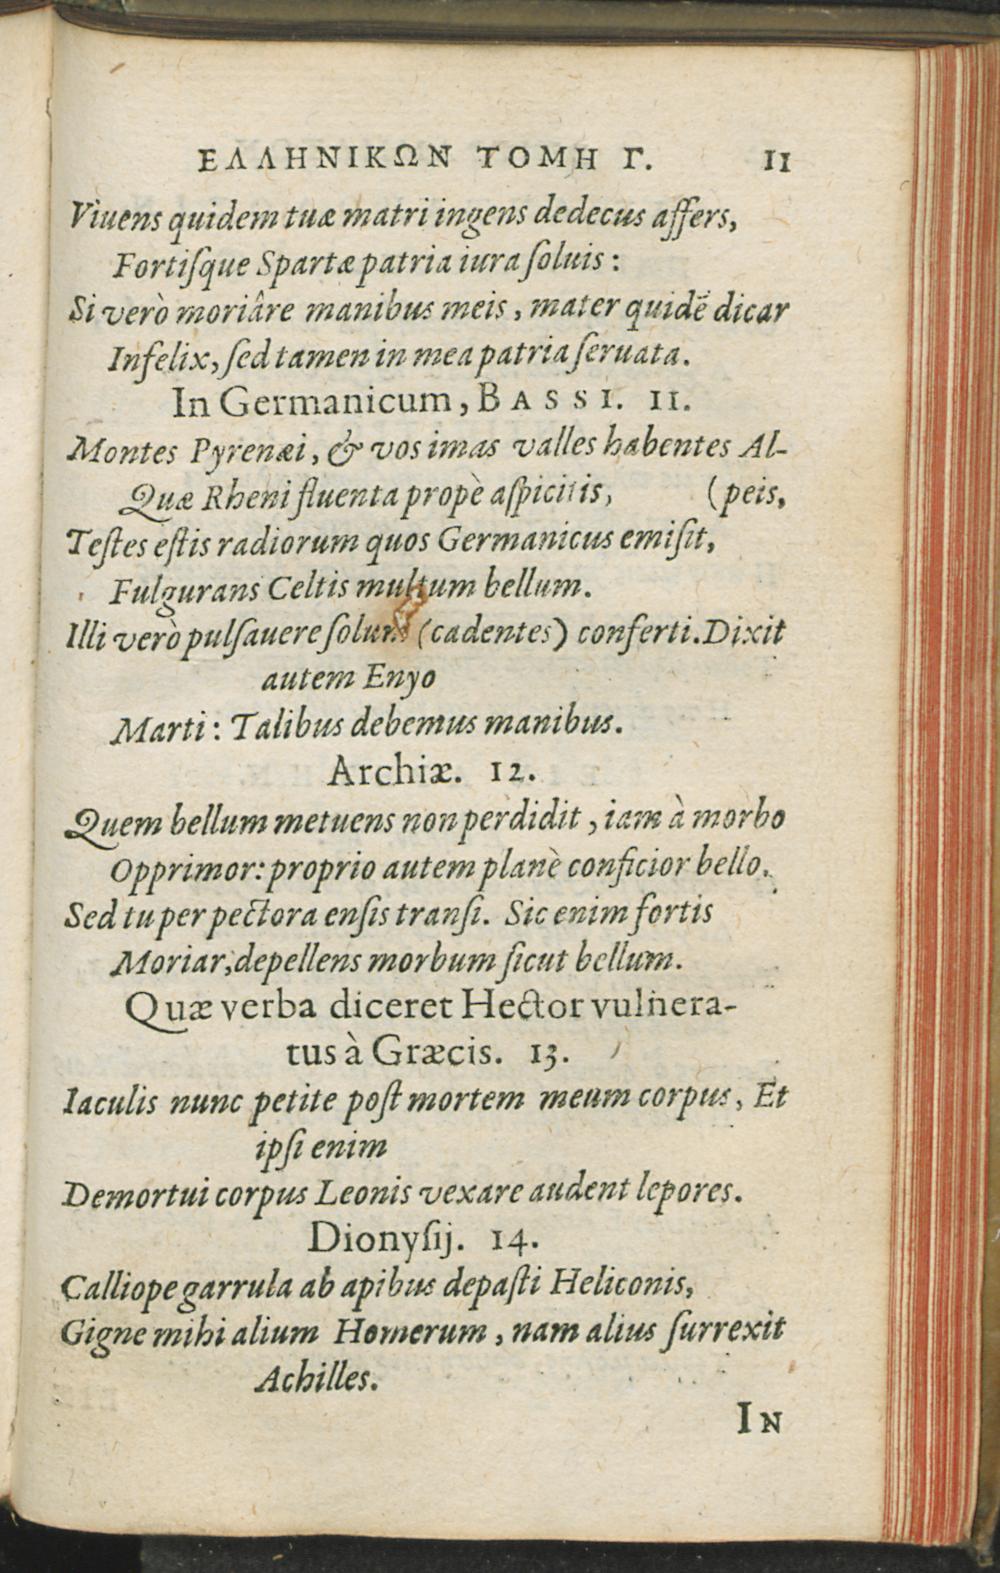 ΕΛΛΗΝΙΚΩΝ ΤΟΜΗ Γ. 11
Viuens quidem tuæ matri ingens dedecus affers,
Fortiſque Spartæ patria iura ſoluis :
Si verò moriâre manibus meis , mater quidẽ dicar
Infelix, ſed tamen in mea patria ſeruata.
In Germanicum, BASSI. 11.
Montes Pyrenæi, & vos imas valles habentes Al-
Quæ Rheni fluenta propè aſpicitis, (peis,
Teſtes eſtis radiorum quos Germanicus emiſit,
Fulgurans Celtis multum bellum.
Illi verò pulſauere ſolum (cadentes) conferti. Dixit
autem Enyo
Marti : Talibus debemus manibus.
Archiæ. 12.
Quem bellum metuens non perdidit , iam à morbo
Opprimor: proprio autem planè conficior bello.
Sed tu per pectora enſis tranſi. Sic enim fortis
Moriar, depellens morbum ſicut bellum.
Quæ verba diceret Hector vulnera-
tus à Græcis. 13.
Iaculis nunc petite poſt mortem meum corpus, Et
ipſi enim
Demortui corpus Leonis vexare audent lepores.
Dionyſij. 14.
Calliope garrula ab apibus depaſti Heliconis,
Gigne mihi alium Homerum , nam alius ſurrexit
Achilles.
IN